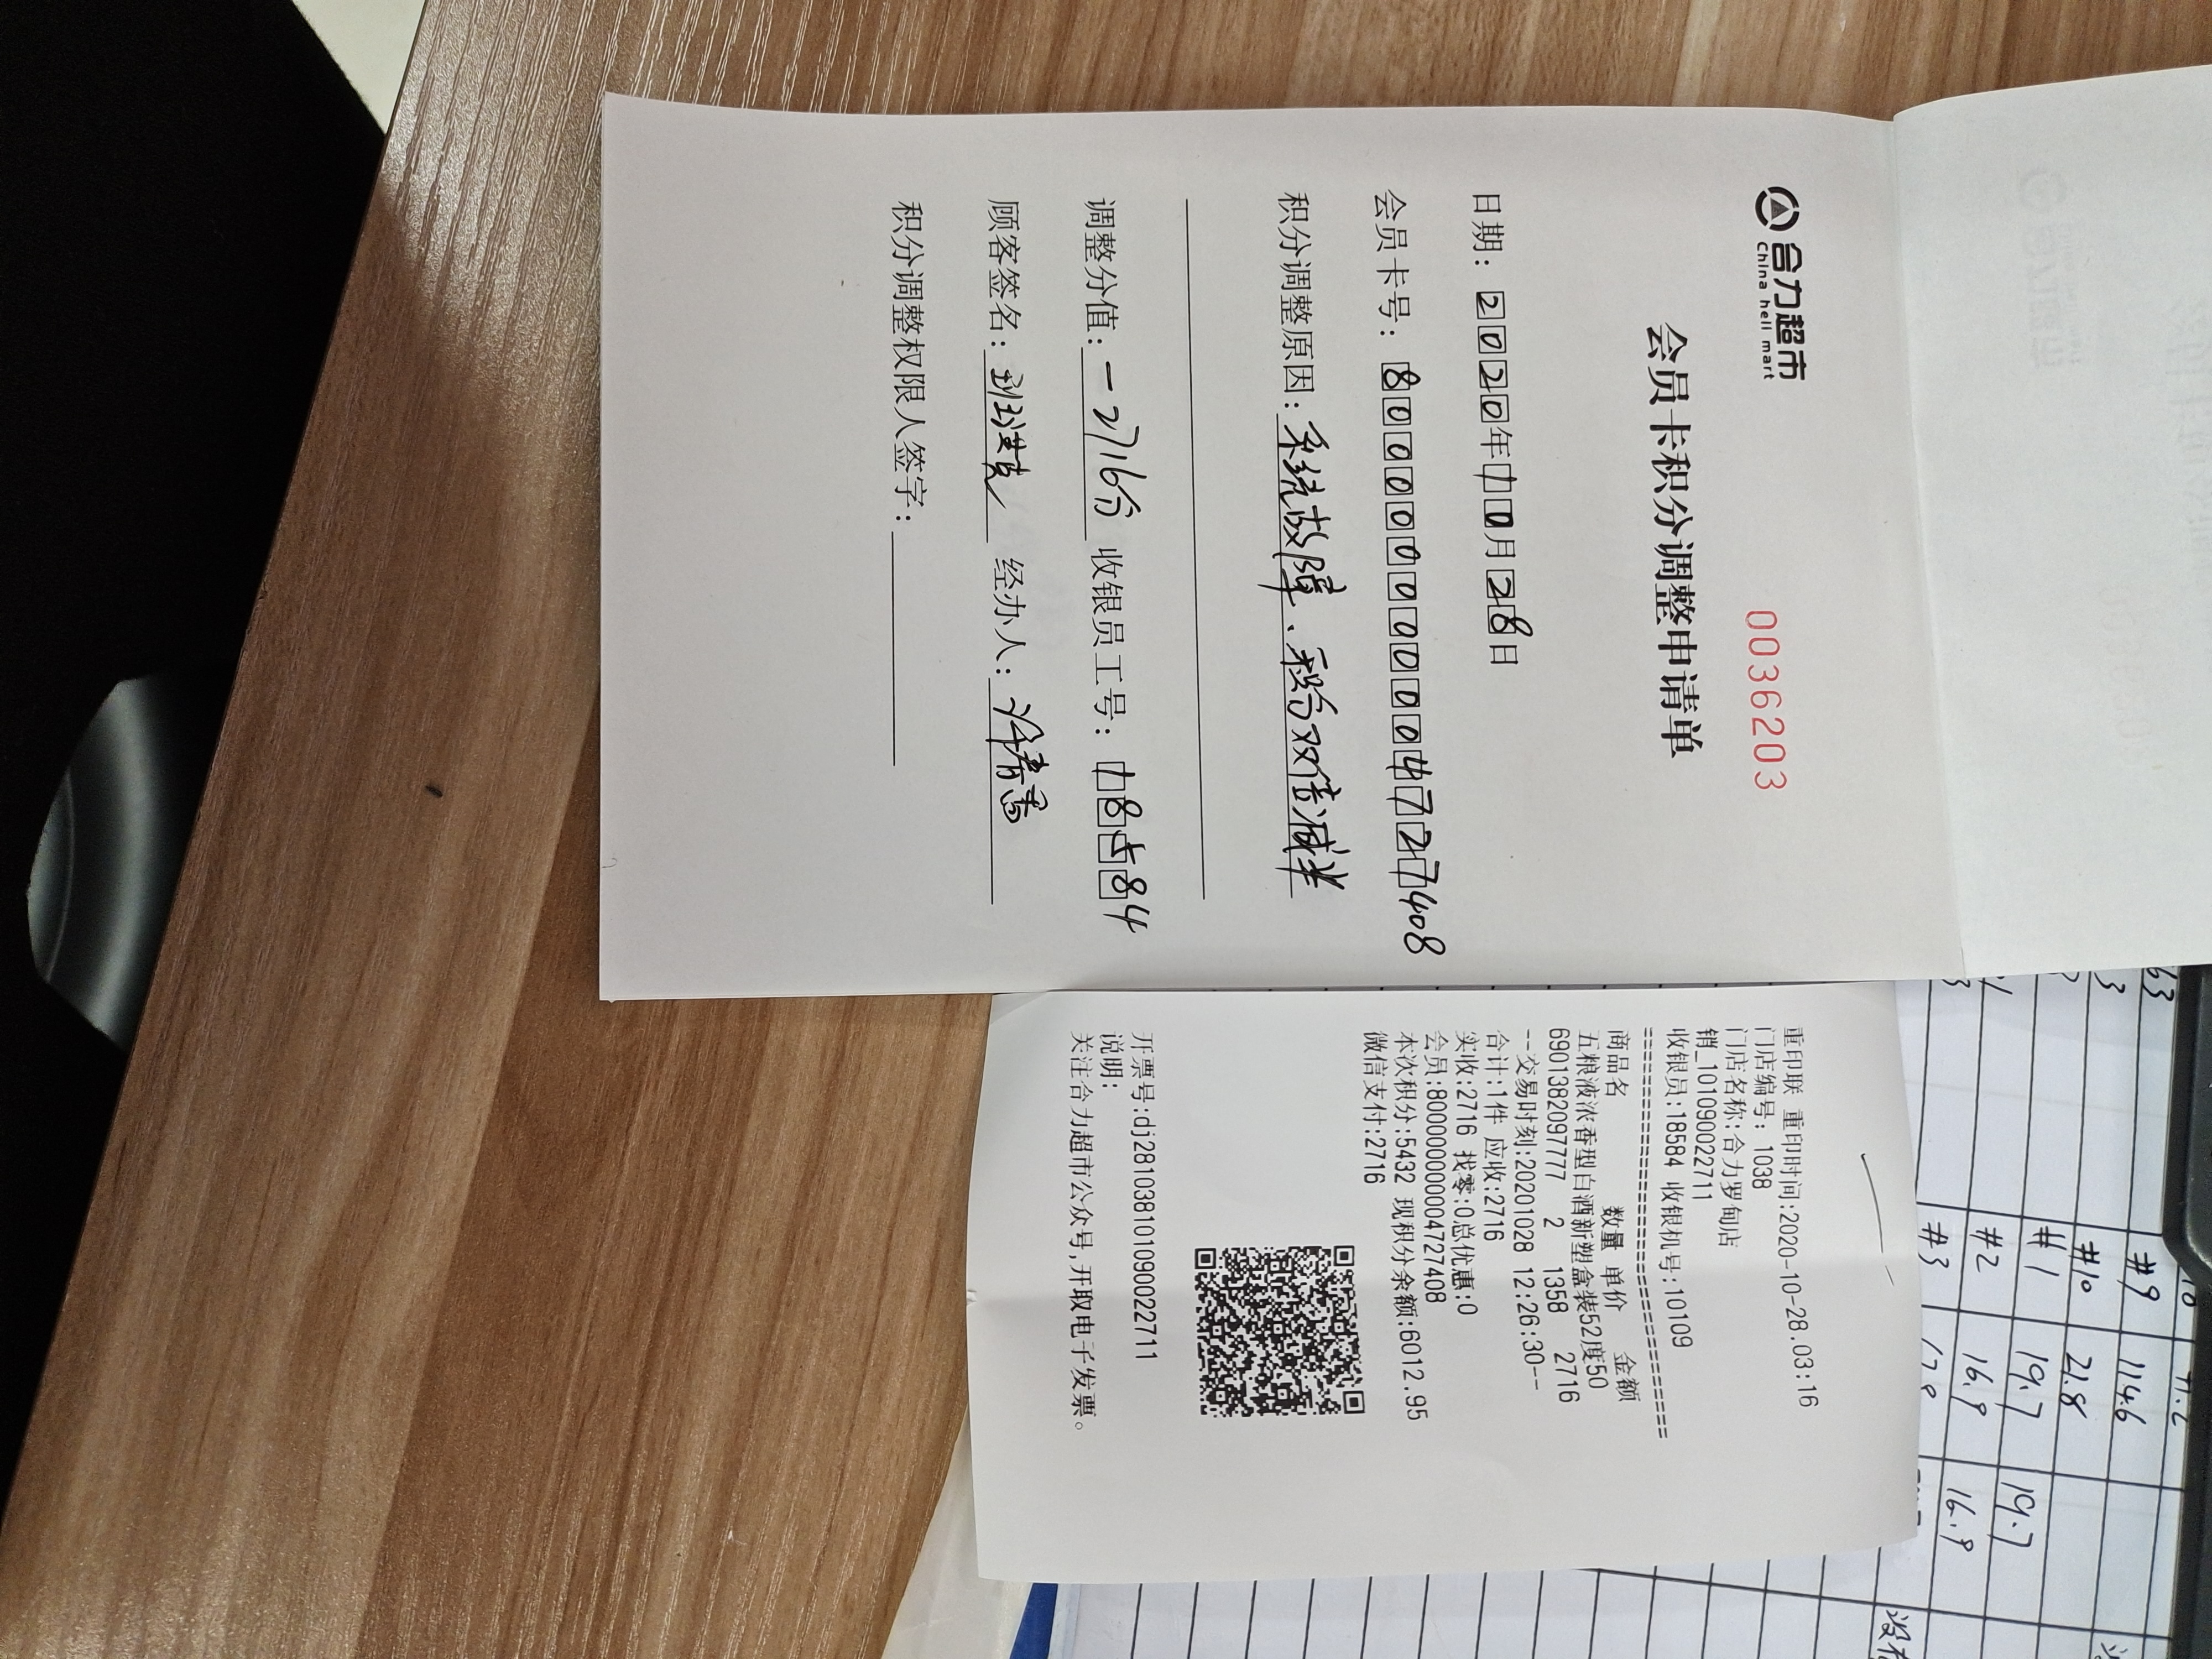 合力超市
China heli mart
0036203
会员卡积分调整申请单
日期：2020年10月28日
会员卡号：8000000000004727408
积分调整原因：系统故障、积分双倍减半
调整分值：-2716分 收银员工号：18584
顾客签名： 经办人：
积分调整权限人签字：
重印联 重印时间:2020-10-28.03:16
门店编号: 1038
门店名称:合力罗甸店
销_10109002​2711
收银员:18584 收银机号:10109
==============================
商品名 数量 单价 金额
五粮液浓香型白酒新塑盒装52度50
6901382097777 2 1358 2716
--交易时刻:20201028 12:26:30--
合计:1件 应收:2716
实收:2716 找零:0总优惠:0
会员:8000000000004727408
本次积分:5432 现积分余额:6012.95
微信支付:2716
开票号:dj281038101090022711
说明:
关注合力超市公众号,开取电子发票。
#9 114.6
#10 21.8
#1 19.7 19.7
#2 16.9 16.9
#3